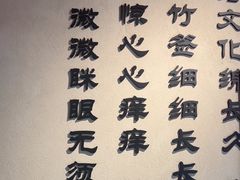 文化绵长久
竹签细细长长
惊心心痒痒
微微眯眼无须